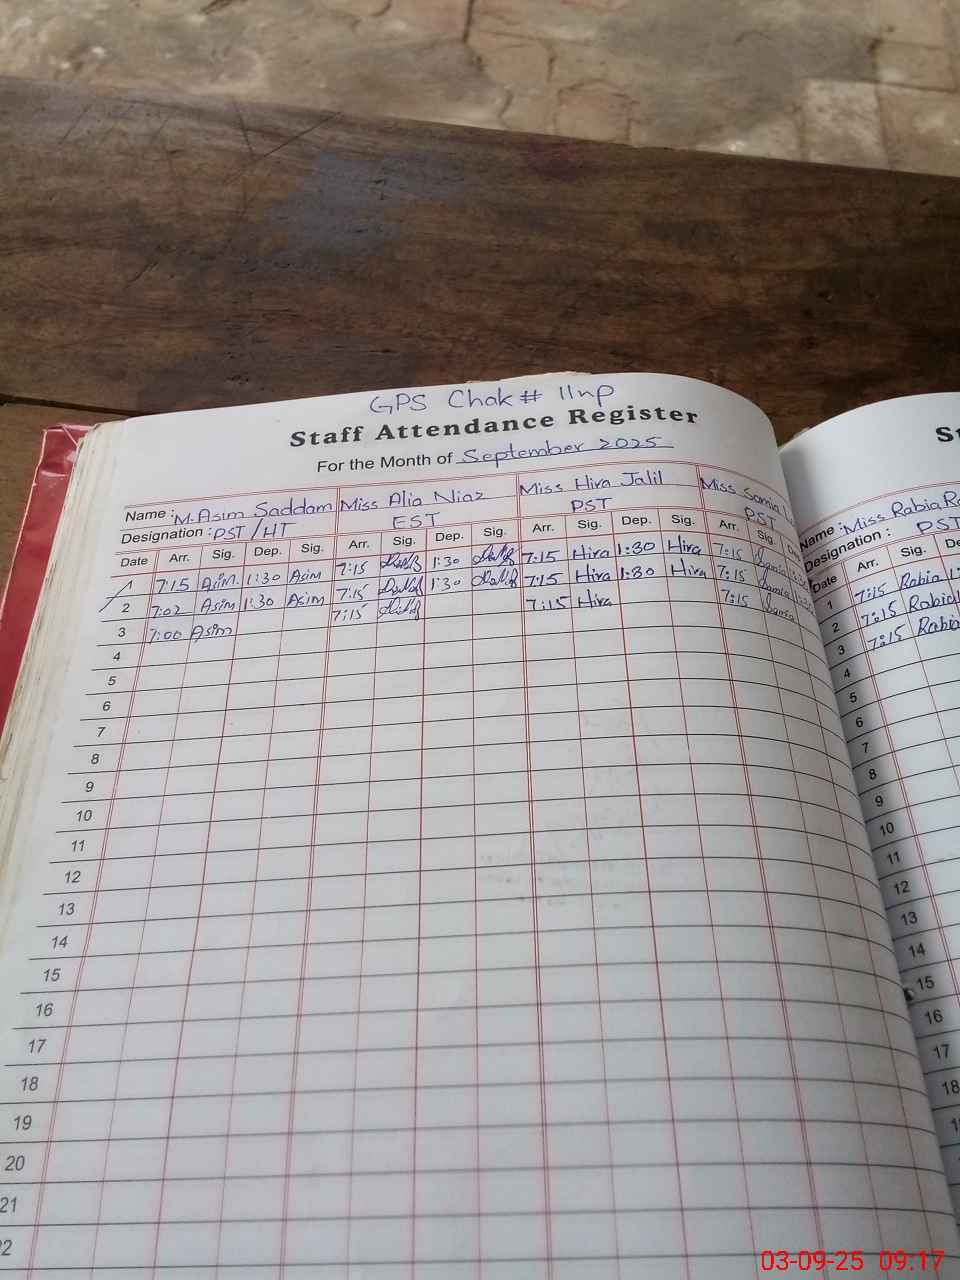 GPS Chak # 11np
Staff Attendance Register
For the Month of September 2025
Name : M. Asim Saddam Miss Alia Niaz Miss Hira Jalil Miss Samia
Designation : PST / HT EST PST PST
Date Arr. Sig. Dep. Sig. Arr. Sig. Dep. Sig. Arr. Sig. Dep. Sig. Arr. Sig.
1 7:15 Asim 1:30 Asim 7:15 1:30 7:15 Hira 1:30 Hira 7:15 Samia
2 7:02 Asim 1:30 Asim 7:15 1:30 7:15 Hira 1:30 Hira 7:15 Samia
3 7:00 Asim 7:15 7:15 Hira 7:15 Samia
4
5
6
7
8
9
10
11
12
13
14
15
16
17
18
19
20
21
Name : Miss Rabia
Designation : PST
Date Arr. Sig.
1 7:15 Rabia
2 7:15 Rabia
3 7:15 Rabia
4
5
6
7
8
9
10
11
12
13
14
15
16
17
18
03-09-25 09:17